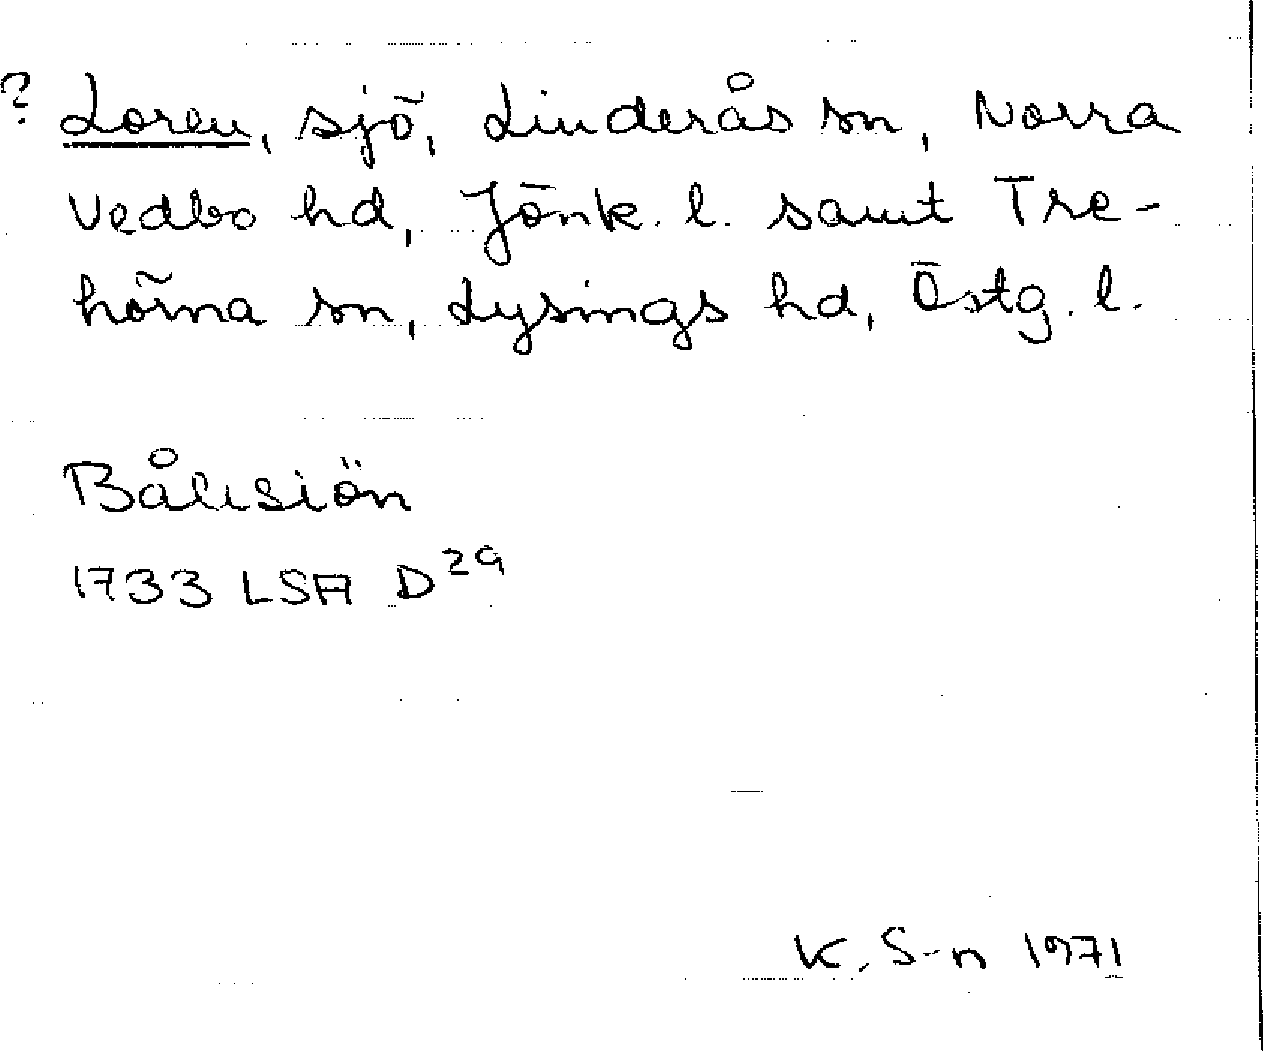 ? Loren, sjö, Linderås sn, Norra
Vedbo hd, Jönk. l. samt Tre-
hörna sn, Lysings hd, Östg. l.
1733 LSA D29
K. S-n 1971